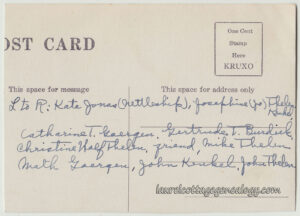 OST CARD
One Cent
Stamp
Here
KRUXO
This space for message
This space for address only
L to R: Kate Jonas (Nettleship), Josephine (Jo) Thelen
Catharine T. Goergen, Gertrude T. Burdick,
Christine Half Thelen, friend Mike Thelen
Math Goergen, John Kenkel, John Thelen
laurelcottagegenealogy.com